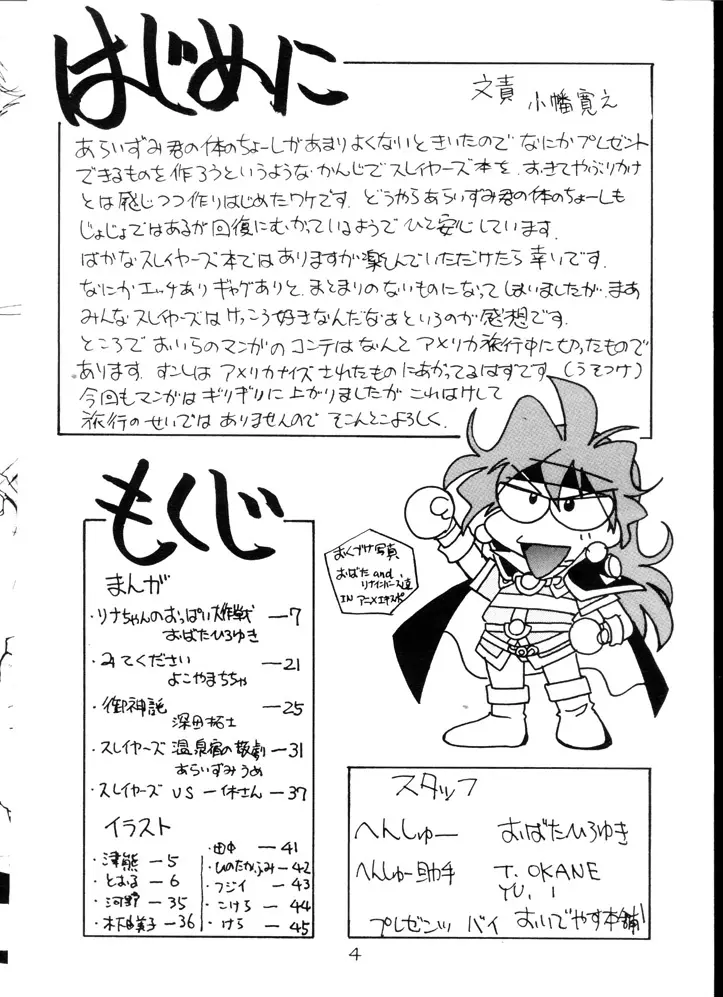 はじめに
文責
小幡寛之
あらいずみ君の体のちょーしがあまりよくないときいたので なにかプレゼント
できるものを作ろうというような かんじでスレイヤーズ本を、おきてやぶりかけ
とは感じつつ作りはじめたワケです。どうやらあらいずみ君の体のちょーしも
じょじょではあるが回復にむかっているようで ひと安心しています。
ばかなスレイヤーズ本ではありますが楽しんでいただけたら幸いです。
なにかエッチありギャグありと、まとまりのないものになってしまいましたが、まあ
みんなスレイヤーズはけっこう好きなんだなあというのが感想です。
ところでおいらのマンガのコンテはなんとアメリカ旅行中に切ったもので
あります。すこしはアメリカナイズされたものにあがってるはずです(うそつけ)
今回もマンガはギリギリに上がりましたが これはけして
旅行のせいではありませんので そこんとこよろしく。
もくじ
まんが
・リナちゃんのおっぱい大作戦 ―7
おばたひろゆき
・みてください ―21
よこやまちちゃ
・御神託 ―25
深田拓士
・スレイヤーズ 温泉宿の惨劇 ―31
あらいずみうめ
・スレイヤーズ VS 一休さん ―37
イラスト
・津熊 ―5
・とおる ―6
・河野 ―35
・木下 ―36
・田中 ―41
・ひのたかふみ ―42
・フジイ ―43
・こけら ―44
・けら ―45
おくづけ写真
おばた and
リナインバース達
IN アニメエキスポ
スタッフ
へんしゅー おばたひろゆき
へんしゅー助手 T. OKANE
プレゼンツ バイ おいでやす本舗
4